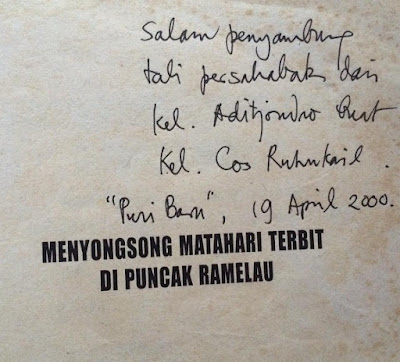 Salam penyambung
tali persahabatan dari
Kel. Aditjondro buat
Kel. Cos Ruhukail.
"Puri Baru", 19 April 2000.
MENYONGSONG MATAHARI TERBIT
DI PUNCAK RAMELAU